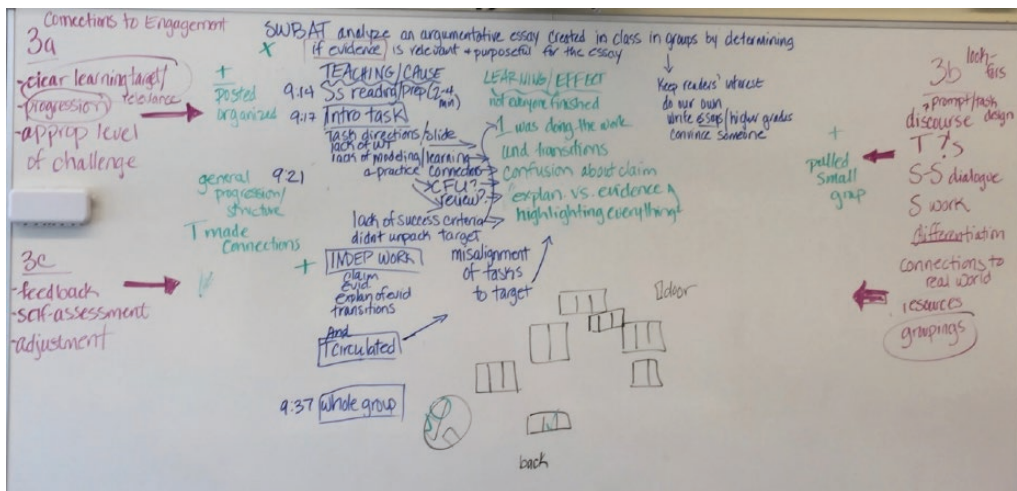 Connections to Engagement
3a
-clear learning target/
progression
relevance
-approp level
of challenge
3c
-feedback
-self-assessment
-adjustment
SWBAT analyze an argumentative essay created in class in groups by determining
x if evidence is relevant + purposeful for the essay
+
posted
organized
general
progression/
structure
T made
connections
TEACHING/CAUSE
9:14 Ss reading/prep (2-4
min)
9:17 Intro task
Task directions/slide
lack of WT
lack of modeling/learning
a-practice connection
CFU?
review?
9:21
lack of success criteria
didnt unpack target
+ INDEP WORK
claim
evid
explan of evid
transitions
And
T circulated
9:37 whole group
LEARNING/EFFECT
not everyone finished
1 was doing the work
and transitions
confusion about claim
explan. vs. evidence
highlighting everything
misalignment
of tasks
to target
Keep readers' interest
do our own
write essays/higher grades
convince someone
door
back
+
pulled
small
group
3b
look-
fors
prompt/task
design
discourse
T ?s
S-S dialogue
S work
differentiation
connections to
real world
resources
groupings